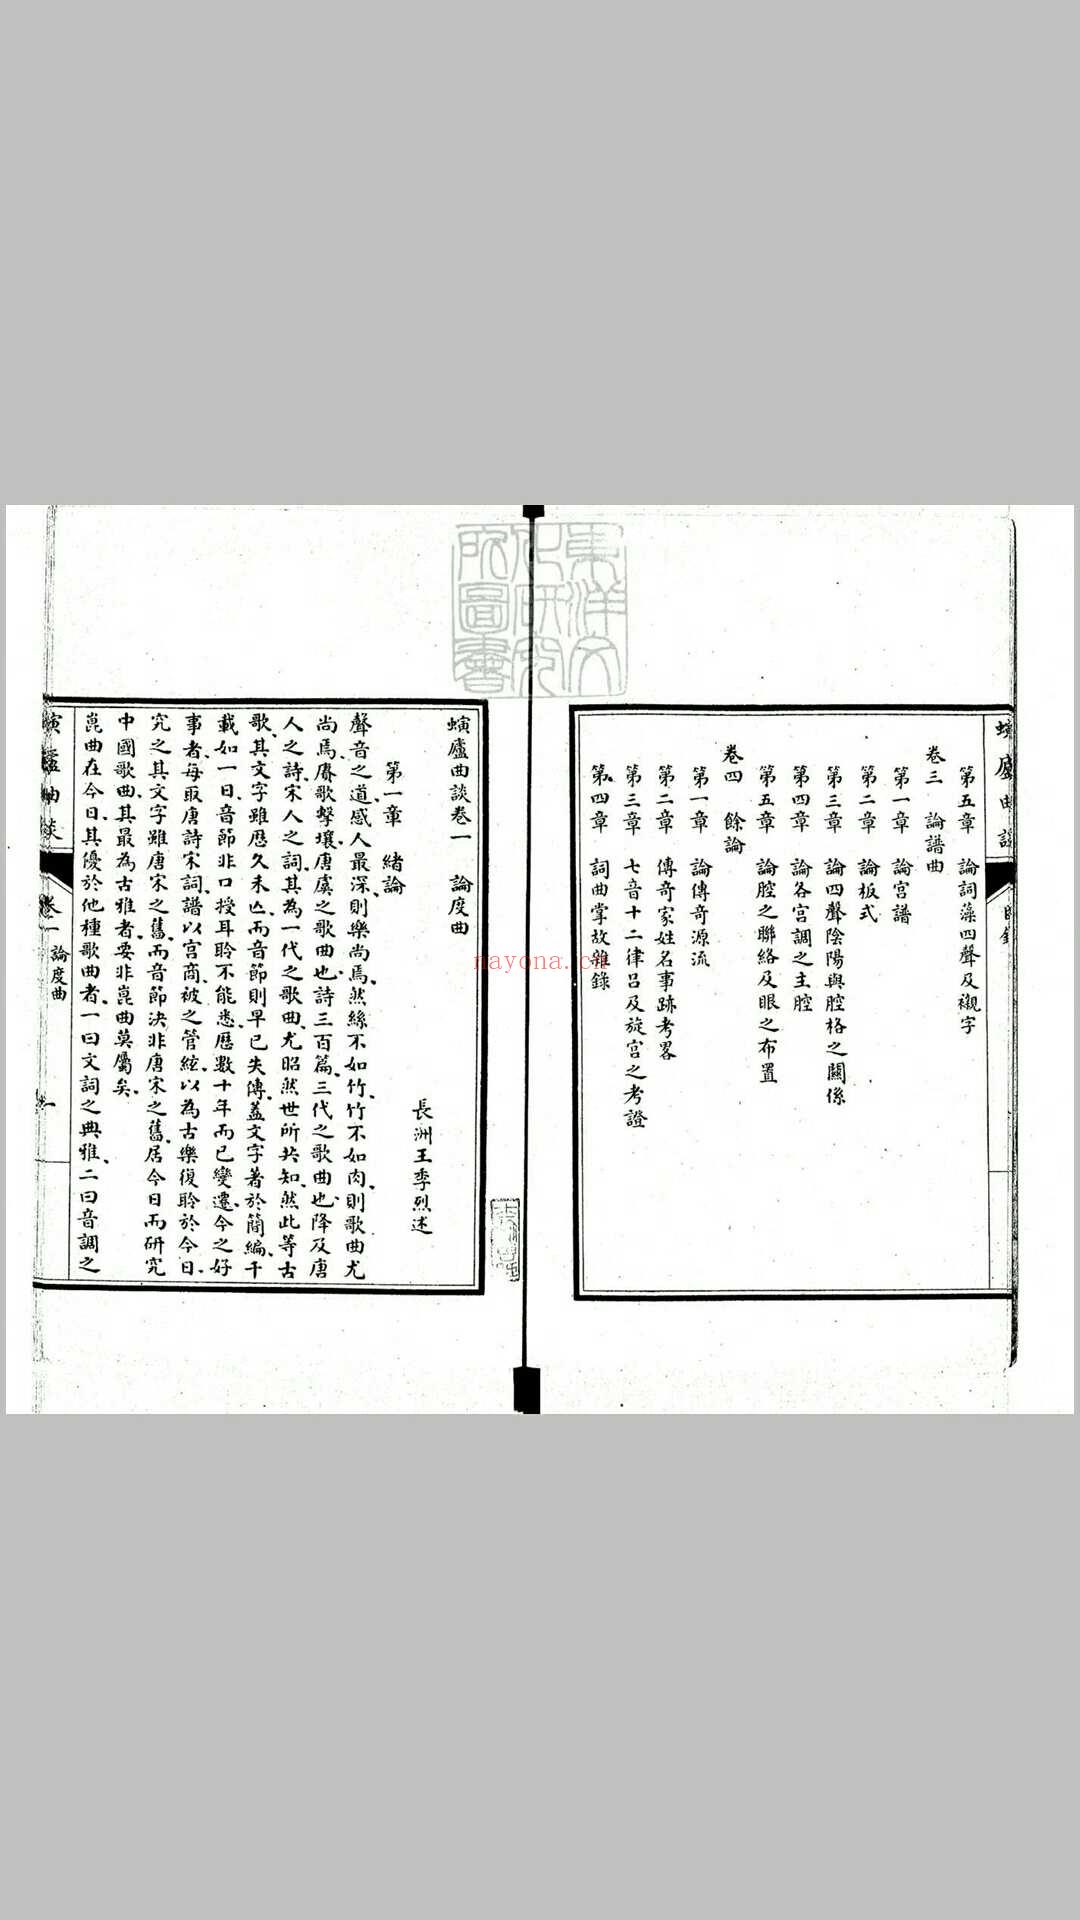 第五章　論詞藻四聲及襯字
卷三　論譜曲
第一章　論宮譜
第二章　論板式
第三章　論四聲陰陽與腔格之關係
第四章　論各宮調之主腔
第五章　論腔之聯絡及眼之布置
卷四　餘論
第一章　論傳奇源流
第二章　傳奇家姓名事跡考畧
第三章　七音十二律呂及旋宮之考證
第四章　詞曲掌故雜錄
東洋文
化研究
所圖書
螾廬曲談卷一　論度曲
長洲王季烈述
第一章　緒論
聲音之道、感人最深、則樂尚焉、然絲不如竹、竹不如肉、則歌曲尤
尚焉、賡歌擊壤、唐虞之歌曲也、詩三百篇、三代之歌曲也、降及唐
人之詩、宋人之詞、其為一代之歌曲、尤昭然世所共知、然此等古
歌、其文字雖歷久未亾、而音節則早已失傳、蓋文字著於簡編、千
載如一日、音節非口授耳聆不能悉、歷數十年而已變遷、今之好
事者、每取唐詩宋詞、譜以宮商、被之管絃、以為古樂復聆於今日、
究之其文字雖唐宋之舊、而音節決非唐宋之舊、居今日而研究
中國歌曲、其最為古雅者、要非崑曲莫屬矣、
崑曲在今日、其優於他種歌曲者、一曰文詞之典雅、二曰音調之
卷一　論度曲
一
nayona.cn